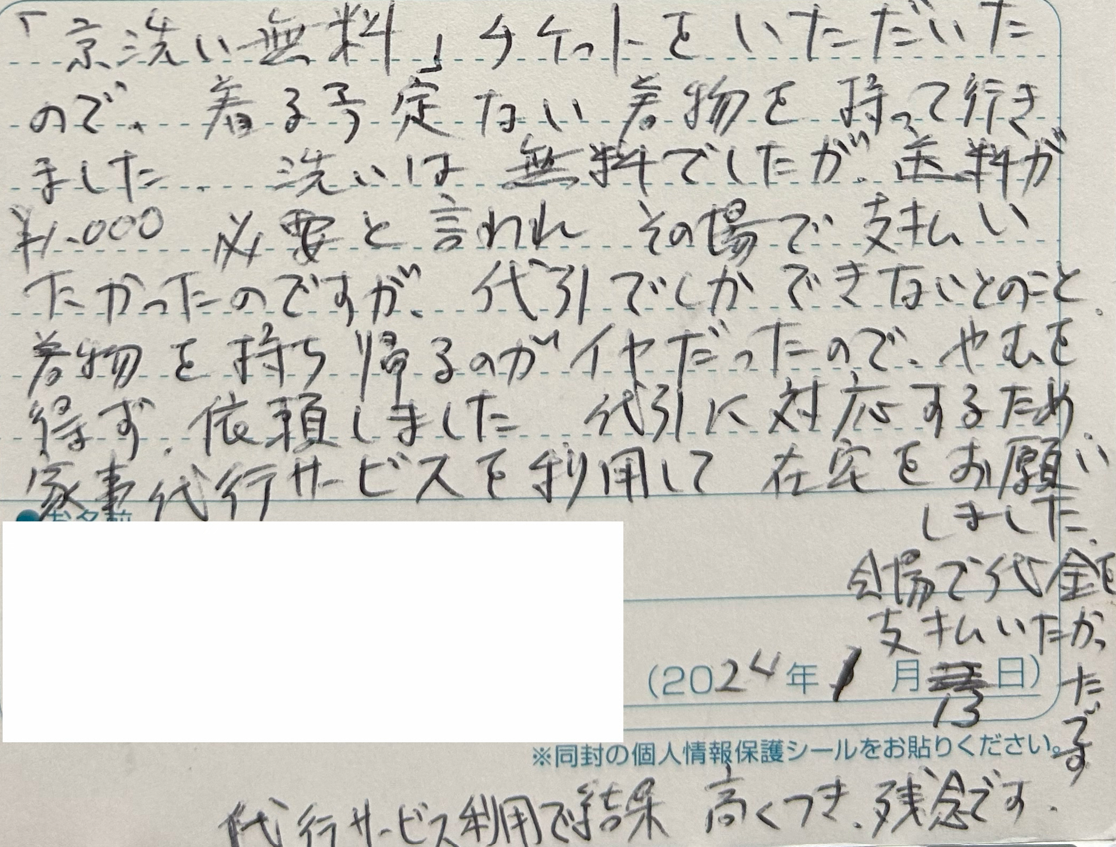 「京洗い無料」チケットをいただいた
ので、着る予定ない着物を持って行き
ました。洗いは無料でしたが、送料が
¥1,000 必要と言われ その場で支払い
たかったのですが、代引でしかできないとのこと。
着物を持ち帰るのがイヤだったので、やむを
得ず、依頼しました 代引に対応するため
家事代行サービスを利用して 在宅をお願い
しました。
会場で代金を
支払いたかっ
たです
(2024年1月13日)
※同封の個人情報保護シールをお貼りください。
代行サービス利用で結果 高くつき、残念です。